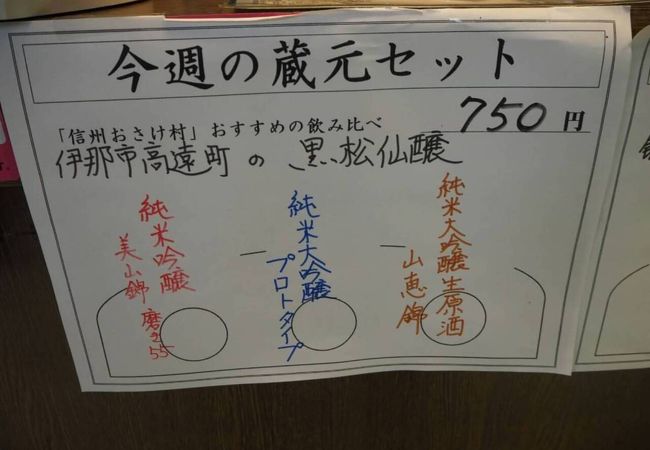 今週の蔵元セット
「信州おさけ村」おすすめの飲み比べ 750円
伊那市高遠町の 黒松仙醸
純米大吟醸生原酒
山恵錦
純米大吟醸
プロトタイプ
純米吟醸
美山錦 磨き55